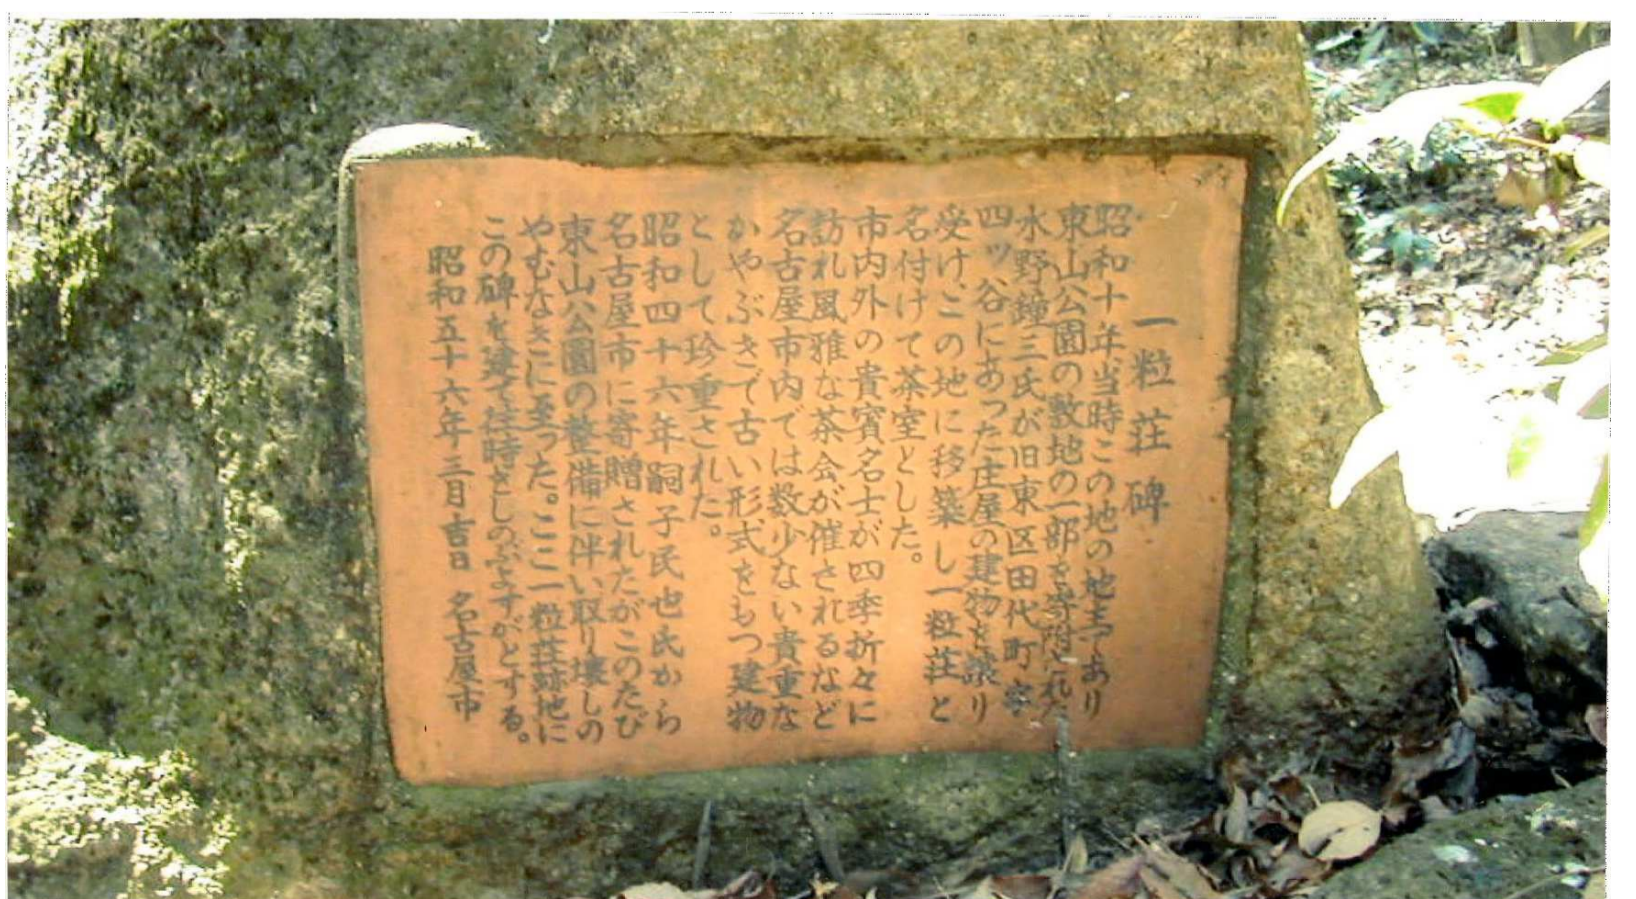 一粒荘碑
昭和十年、当時この地の地主であり
東山公園の敷地の一部を寄附された
水野鐘三氏が旧東区田代町字
四ツ谷にあった庄屋の建物を譲り
受け、この地に移築し一粒荘と
名付けて茶室とした。
市内外の貴賓名士が四季折々に
訪れ風雅な茶会が催されるなど
名古屋市内では数少ない貴重な
かやぶきで古い形式をもつ建物
として珍重された。
昭和四十六年嗣子民也氏から
名古屋市に寄贈されたがこのたび
東山公園の整備に伴い取り壊しの
やむなきに至った。ここ一粒荘跡地に
この碑を建て往時をしのぶよすがとする。
昭和五十六年三月吉日 名古屋市